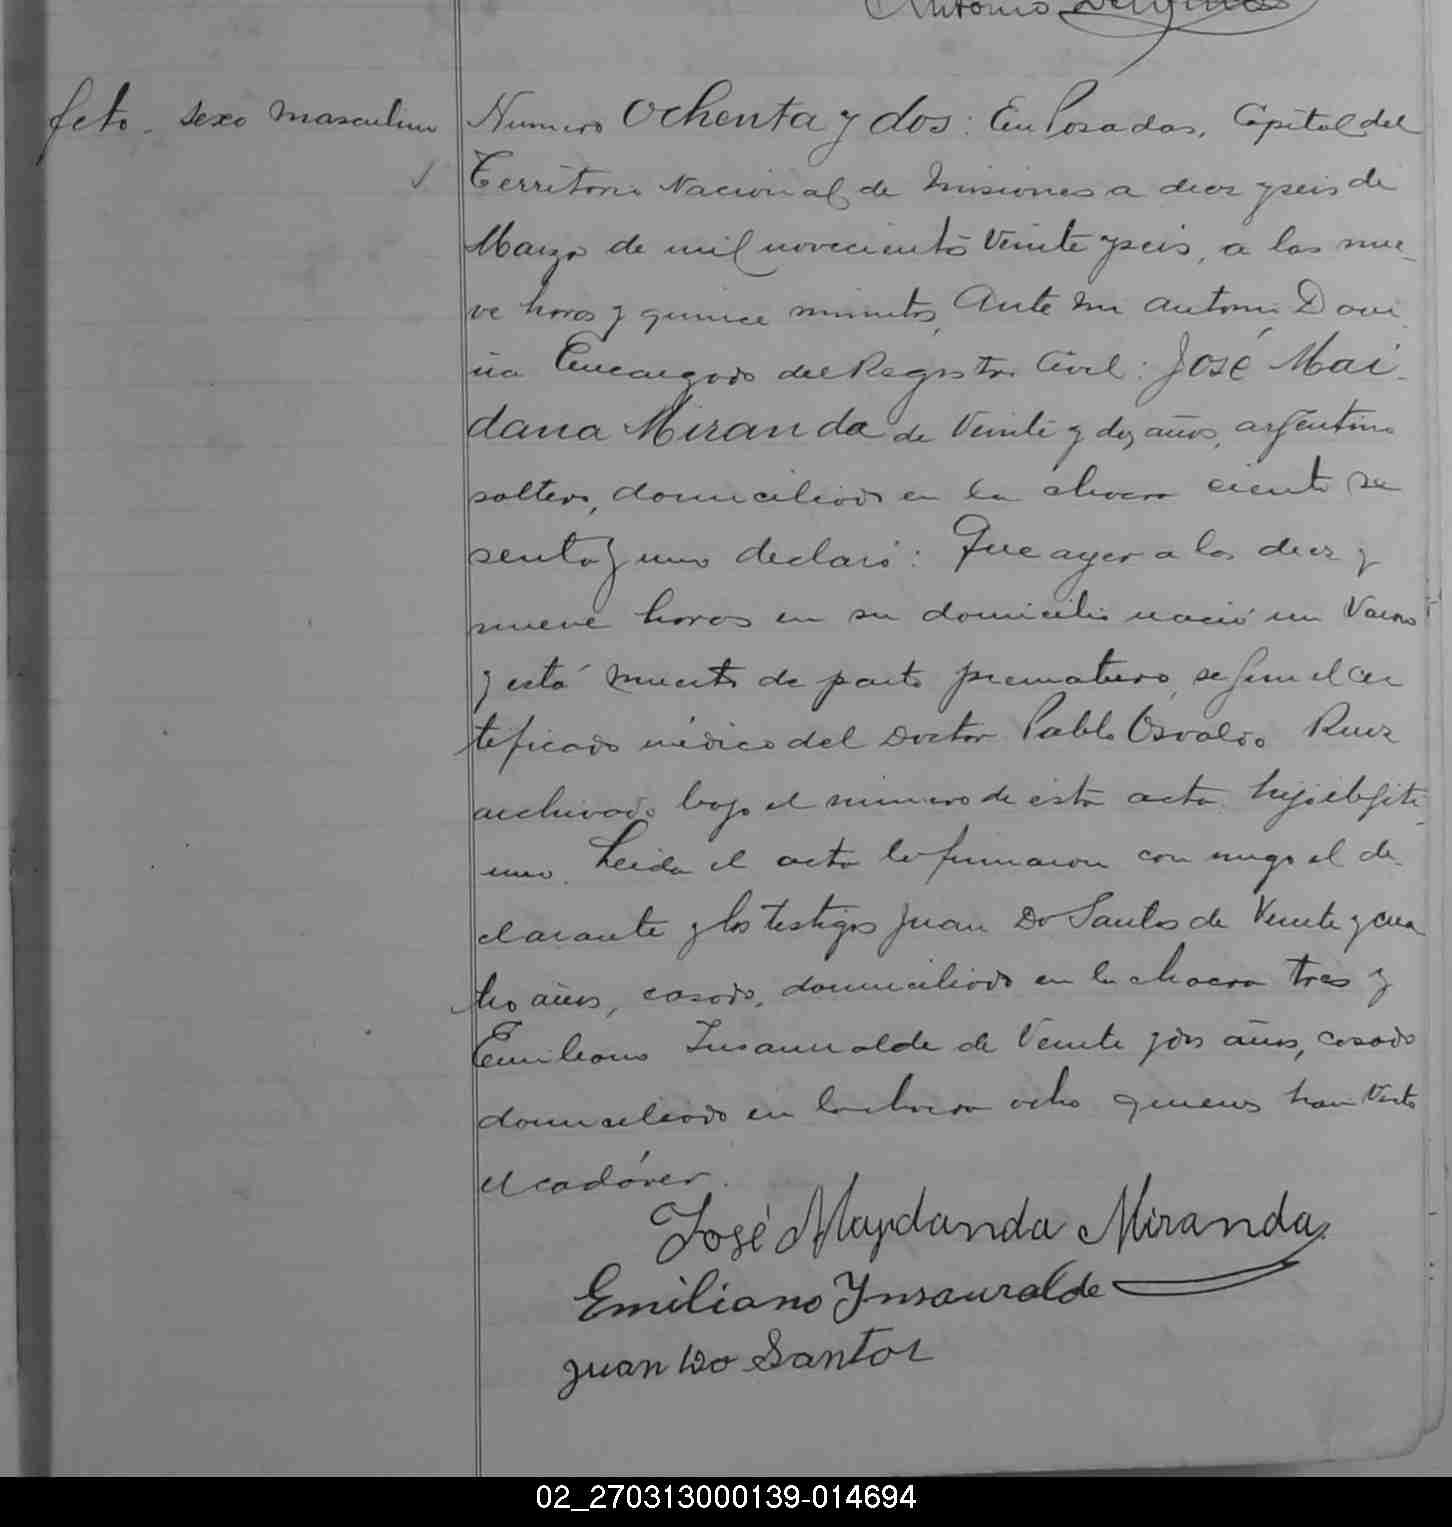 Antonio
feto. sexo masculino
Numero Ochenta y dos: En Posadas, Capital del
Territorio Nacional de Misiones a diez y seis de
Marzo de mil novecientos Veinte y seis, a las nue-
ve horas y quince minutos, Ante mi Antonio
Encargado del Registro Civil: José Mai-
dana Miranda de Veinte y dos años, argentino
soltero, domiciliado en la chacra ciento se
senta y uno declaró: Que ayer a las diez y
nueve horas en su domicilio nació un Varon
y está muerto de parto prematuro, segun el cer
tificado médico del Doctor Pablo Osvaldo Ruiz
archivado bajo el numero de esta acta. hijo ilegiti-
mo. Leida el acta la firmaron con migo el de-
clarante y los testigos Juan Do Santos de Veinte y cua
tro años, casado, domiciliado en la chacra tres y
Emiliano Insaurralde de Veinte y dos años, casado
domiciliado en la chacra ocho quienes han Visto
el cadáver.
José Maydanda Miranda
Emiliano Ynsauralde
Juan Do Santos
02_270313000139-014694